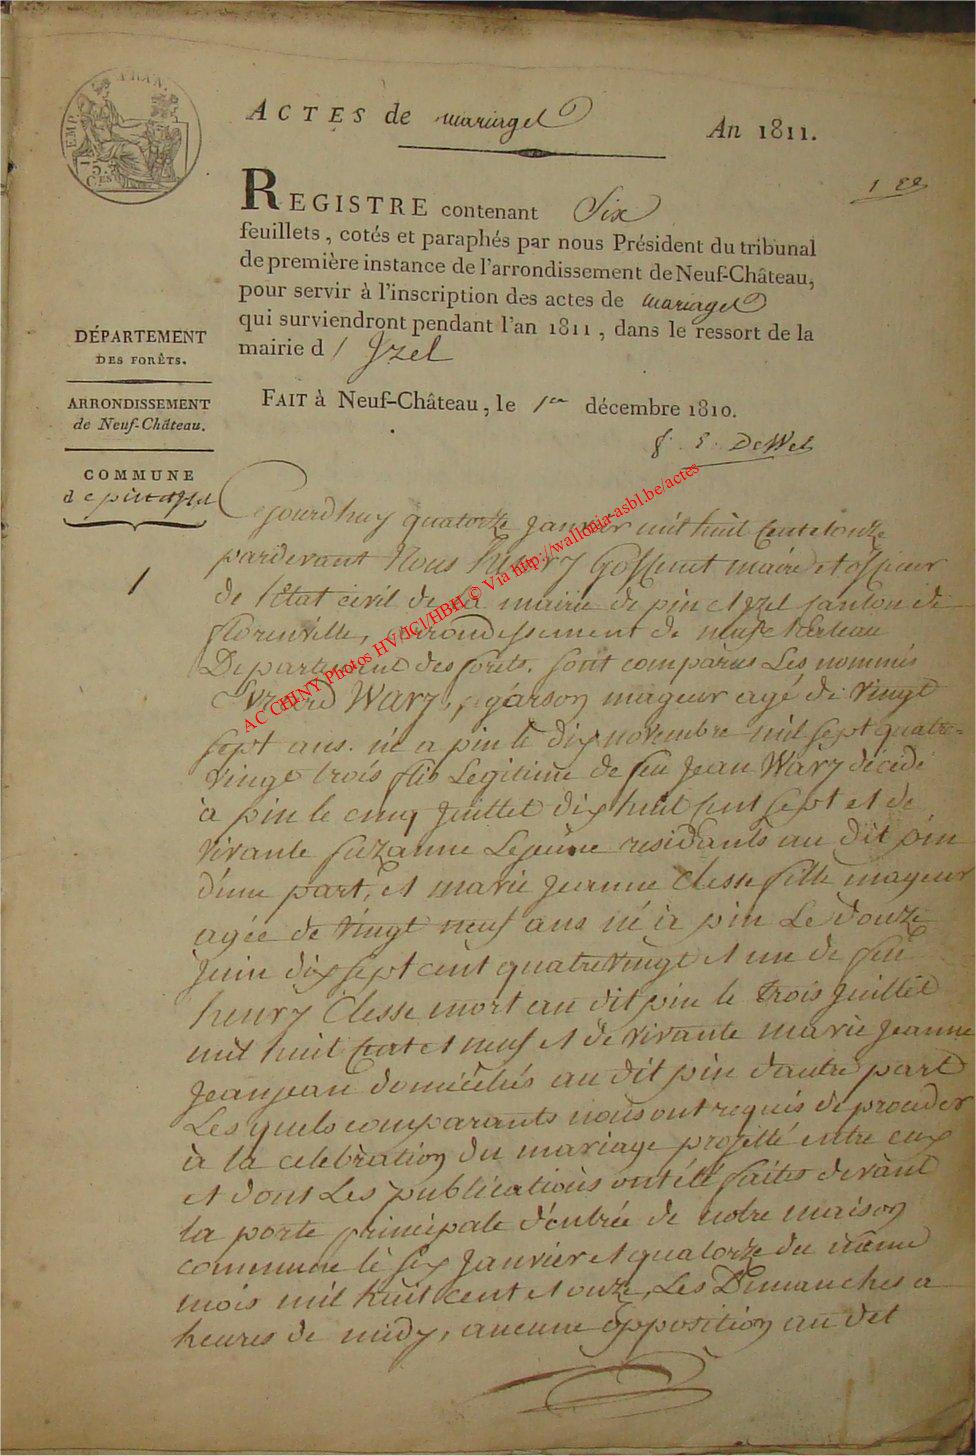 ACTES de mariages
An 1811.
REGISTRE contenant Six
feuillets, cotés et paraphés par nous Président du tribunal
de première instance de l'arrondissement de Neuf-Château,
pour servir à l'inscription des actes de mariages
qui surviendront pendant l'an 1811, dans le ressort de la
mairie d' Izel
FAIT à Neuf-Château, le 1er décembre 1810.
DÉPARTEMENT
DES FORÊTS.
ARRONDISSEMENT
de Neuf-Château.
COMMUNE
de pin et Izel
1
Cejourdhuy quatorze janvier mil huit cent et onze
pardevant Nous henry Goffinet maire et officier
de l'Etat civil de la mairie de pin et Izel canton de
florenville, arrondissement de neufchateau
Departement des forêts. sont comparus Les nommés
Wary, garson mageur agé de vingt
sept ans. né a pin le dix novembre mil sept quatre-
vingt trois fils Legitime de feu Jean Wary décédé
à pin le cinq Juillet dix huit cent sept et de
vivante Suzanne Lejeune residants au dit pin
d'une part, et marie Jeanne Clesse fille mageur
agée de vingt neuf ans né à pin Le douze
Juin dix sept cent quatrevingt et un de feu
henry Clesse mort au dit pin le trois Juillet
mil huit Cent et neuf et de vivante marie Jeanne
Jeanjean domiciliés au dit pin d'autre part
Les quels comparants nous ont requis de proceder
à la celebration du mariage projetté entre eux
et dont Les publications ont été faites devant
la porte principale d'entrée de notre maison
commune le six Janvier et quatorze du même
mois mil huit cent et onze, Les Dimanches a
heures de midy, aucune opposition au dit
AC CHINY Photos HV/JCl/HBH © Via http://wallonia-asbl.be/actes